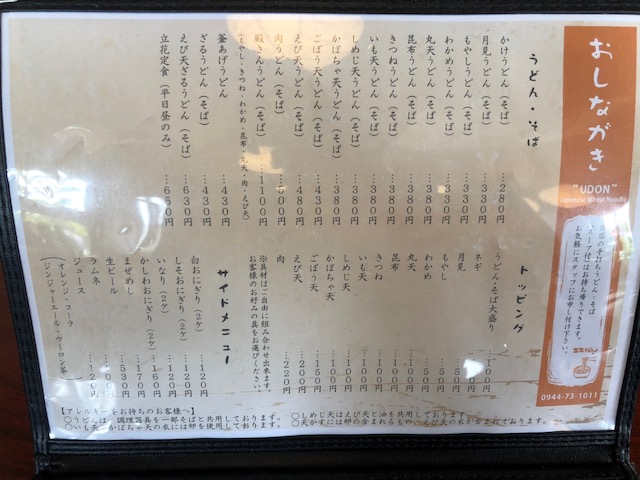 おしながき
"UDON"
Japanese Wheat Noodle
店の手打ちうどん・そば
スープ付はお持ち帰りできます。
お気軽にスタッフにお申し付け下さい。
0944-73-1011
うどん・そば
かけうどん(そば) …280円
月見うどん(そば) …330円
もやしうどん(そば) …330円
わかめうどん(そば) …330円
丸天うどん(そば) …380円
昆布うどん(そば) …380円
きつねうどん(そば) …380円
いも天うどん(そば) …380円
しめじ天うどん(そば) …380円
かぼちゃ天うどん(そば) …380円
ごぼう天うどん(そば) …430円
えび天うどん(そば) …480円
肉うどん(そば) …500円
殿さんうどん(そば) …1100円
(もやし・きつね・わかめ・昆布・丸天・肉・えび天)
釜あげうどん …430円
ざるうどん(そば) …430円
えび天ざるうどん(そば) …630円
立花定食(平日昼のみ) …650円
トッピング
うどん・そば大盛り …100円
ネギ
月見 50円
もやし …50円
わかめ …50円
丸天 …100円
昆布 …100円
きつね …100円
いも天 …100円
しめじ天 …100円
かぼちゃ天 …100円
ごぼう天 …150円
えび天 …200円
肉 …220円
※具材はご自由に組み合わせ出来ます。
お客様のお好みの具をお選びください。
サイドメニュー
白おにぎり(2ケ) …120円
しそおにぎり(2ケ) …120円
いなり(2ケ) …160円
かしわおにぎり(2ケ) …170円
まぜめし …530円
生ビール
ラムネ
ジュース …120円
(オレンジ・コーラ
ジンジャーエール・ウーロン茶)
【アレルギーをお持ちのお客様へ】
○うどんは、調理器具を一部そばと共用しております。
○いも天、かぼちゃ天の衣には卵を使用しております。
○しめじ天はえび天と油を共用しております。
○天かすには卵の含まれるもの、えび天の衣が含まれております。